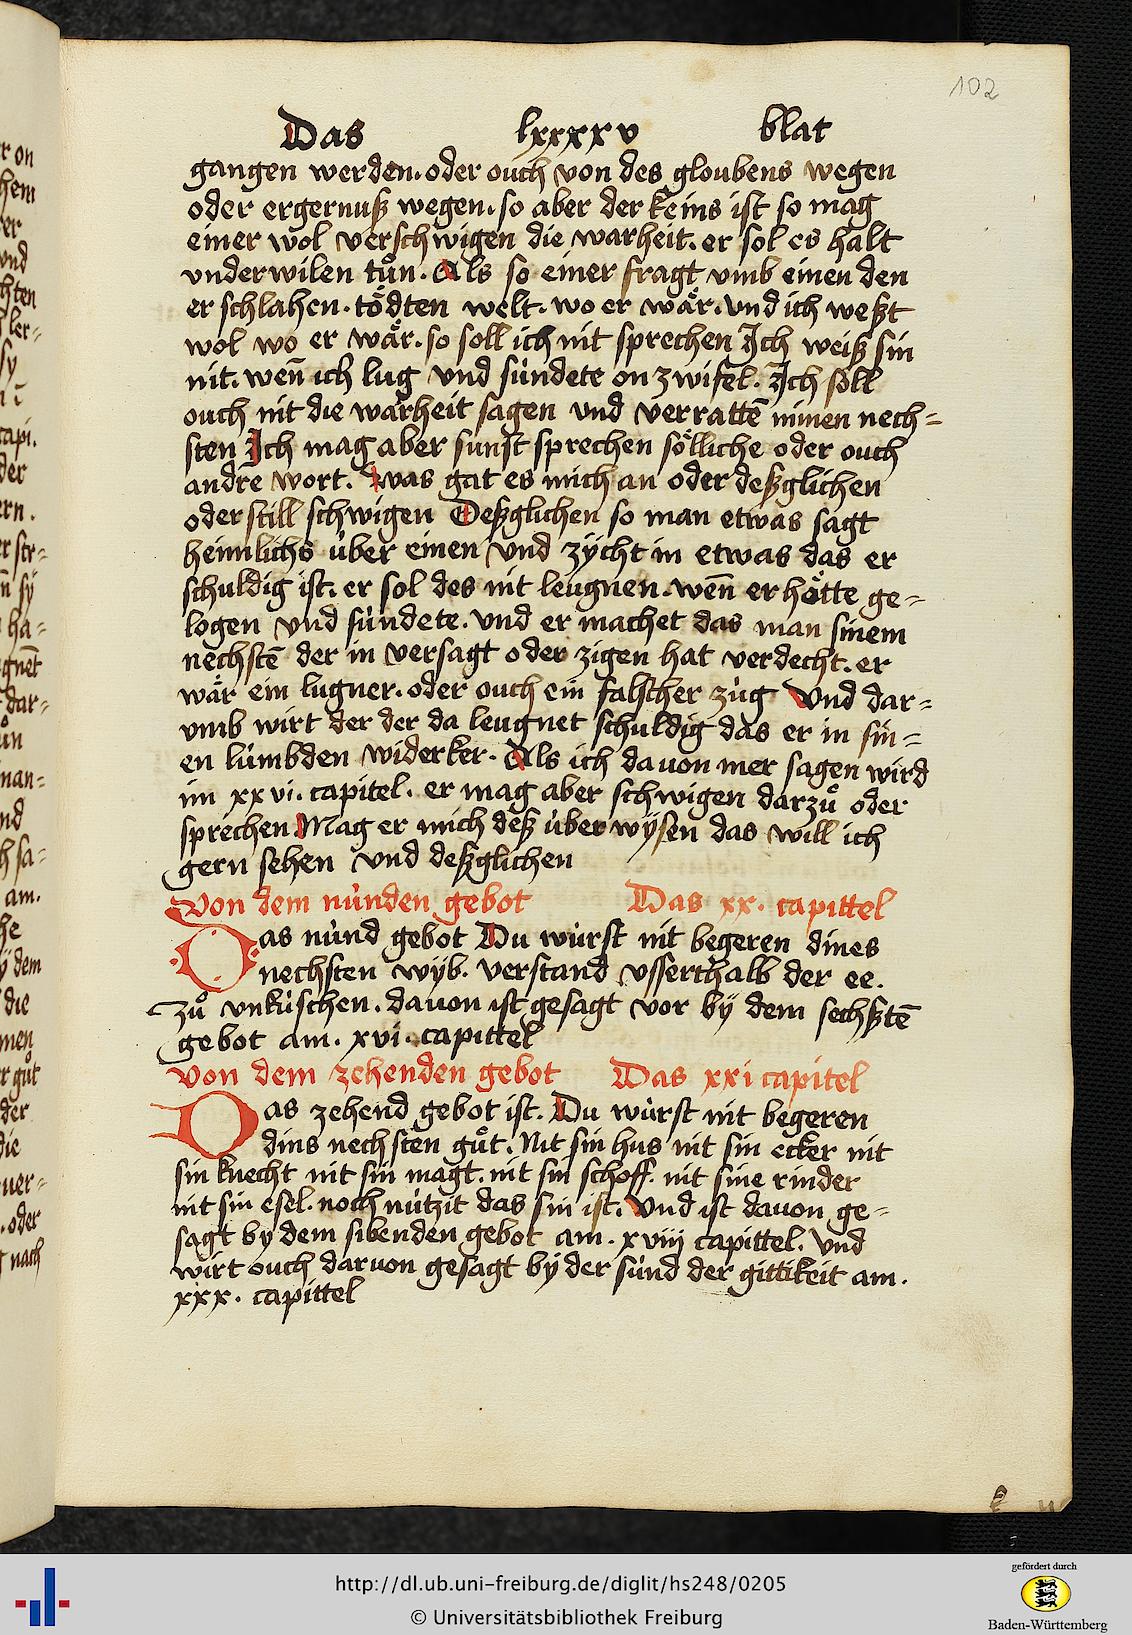 102
Das lxxxxv blat
gangen werden. oder ouch von des gloubens wegen
oder ergernuß wegen. so aber der keins ist so mag
einer wol verschwigen die warheit. er sol es halt
vnderwilen tůn. Als so einer fragt vmb einen den
er schlahen. tödten welt. wo er wär. vnd ich weßt
wol wo er wär. so soll ich nit sprechen Ich weiß sin
nit. wen̄ ich lug vnd sündete on zwifel. Ich soll
ouch nit die warheit sagen vnd verrattē minen nech=
sten Ich mag aber sunst sprechen sölliche oder ouch
andre wort. was gat es mich an oder deßglichen
oder still schwigen Deßglichen so man etwas sagt
heimlichs über einen vnd zÿcht in etwas das er
schuldig ist. er sol des nit leugnen. wen̄ er hätte ge=
logen vnd sündete. vnd er machet das man sinem
nechstē der in versagt oder zigen hat verdecht. er
wär ein lugner. oder ouch ein falscher züg Vnd dar=
vmb wirt der der da leugnet schuldig das er in sin=
en lümbden widerker. Als ich dauon mer sagen wird
im xxvi. capitel. er mag aber schwigen darzů oder
sprechen Mag er mich deß überwÿsen das will ich
gern sehen vnd deßglichen
Von dem nünden gebot Das xx. capittel
Das nünd gebot Du würst nit begeren dines
nechsten wÿb. verstand vsserthalb der ee.
zů vnküschen. dauon ist gesagt vor bÿ dem sechßtē
gebot am. xvi. capittel
Von dem zehenden gebot Das xxi capitel
Das zehend gebot ist. Du würst nit begeren
dins nechsten gůt. Nit sin hus nit sin ecker nit
sin knecht nit sin magt. nit sin schoff. nit sine rinder
nit sin esel. noch nützit das sin ist. Vnd ist dauon ge=
sagt by dem sibenden gebot am. xviij capittel. Vnd
wirt ouch daruon gesagt bÿ der sünd der gittikeit am.
xxx. capittel
http://dl.ub.uni-freiburg.de/diglit/hs248/0205
© Universitätsbibliothek Freiburg
gefördert durch
Baden-Württemberg